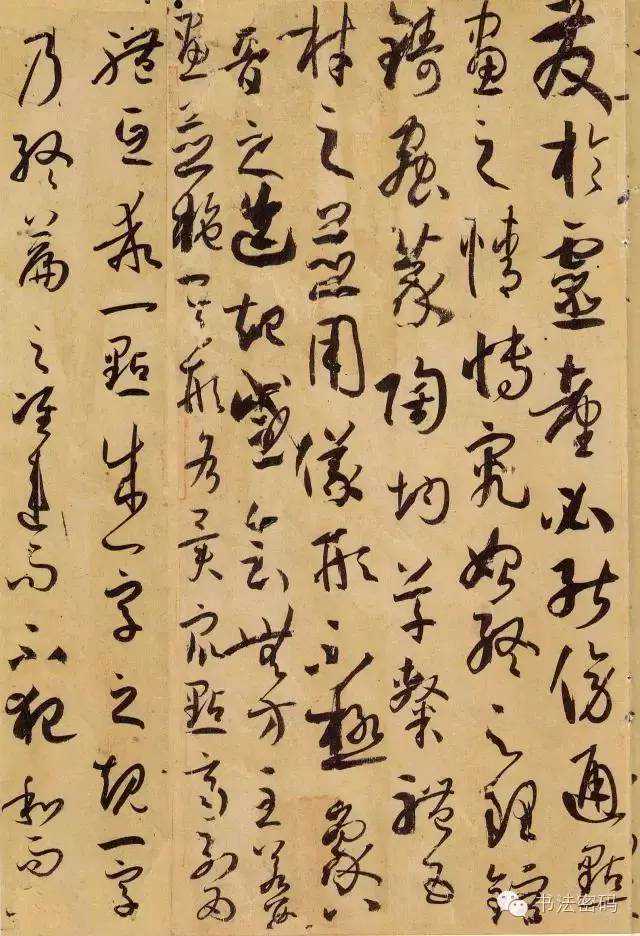 發於靈臺必能傍通點
畫之情博究始終之理鎔
鑄蟲篆陶均草隸體五
材之並用儀形不極象八
音之迭起感會無方至若數
畫並施其形各異衆點齊列為
體互乖一點成一字之規一字
乃終篇之准違而不犯和而
书法密码